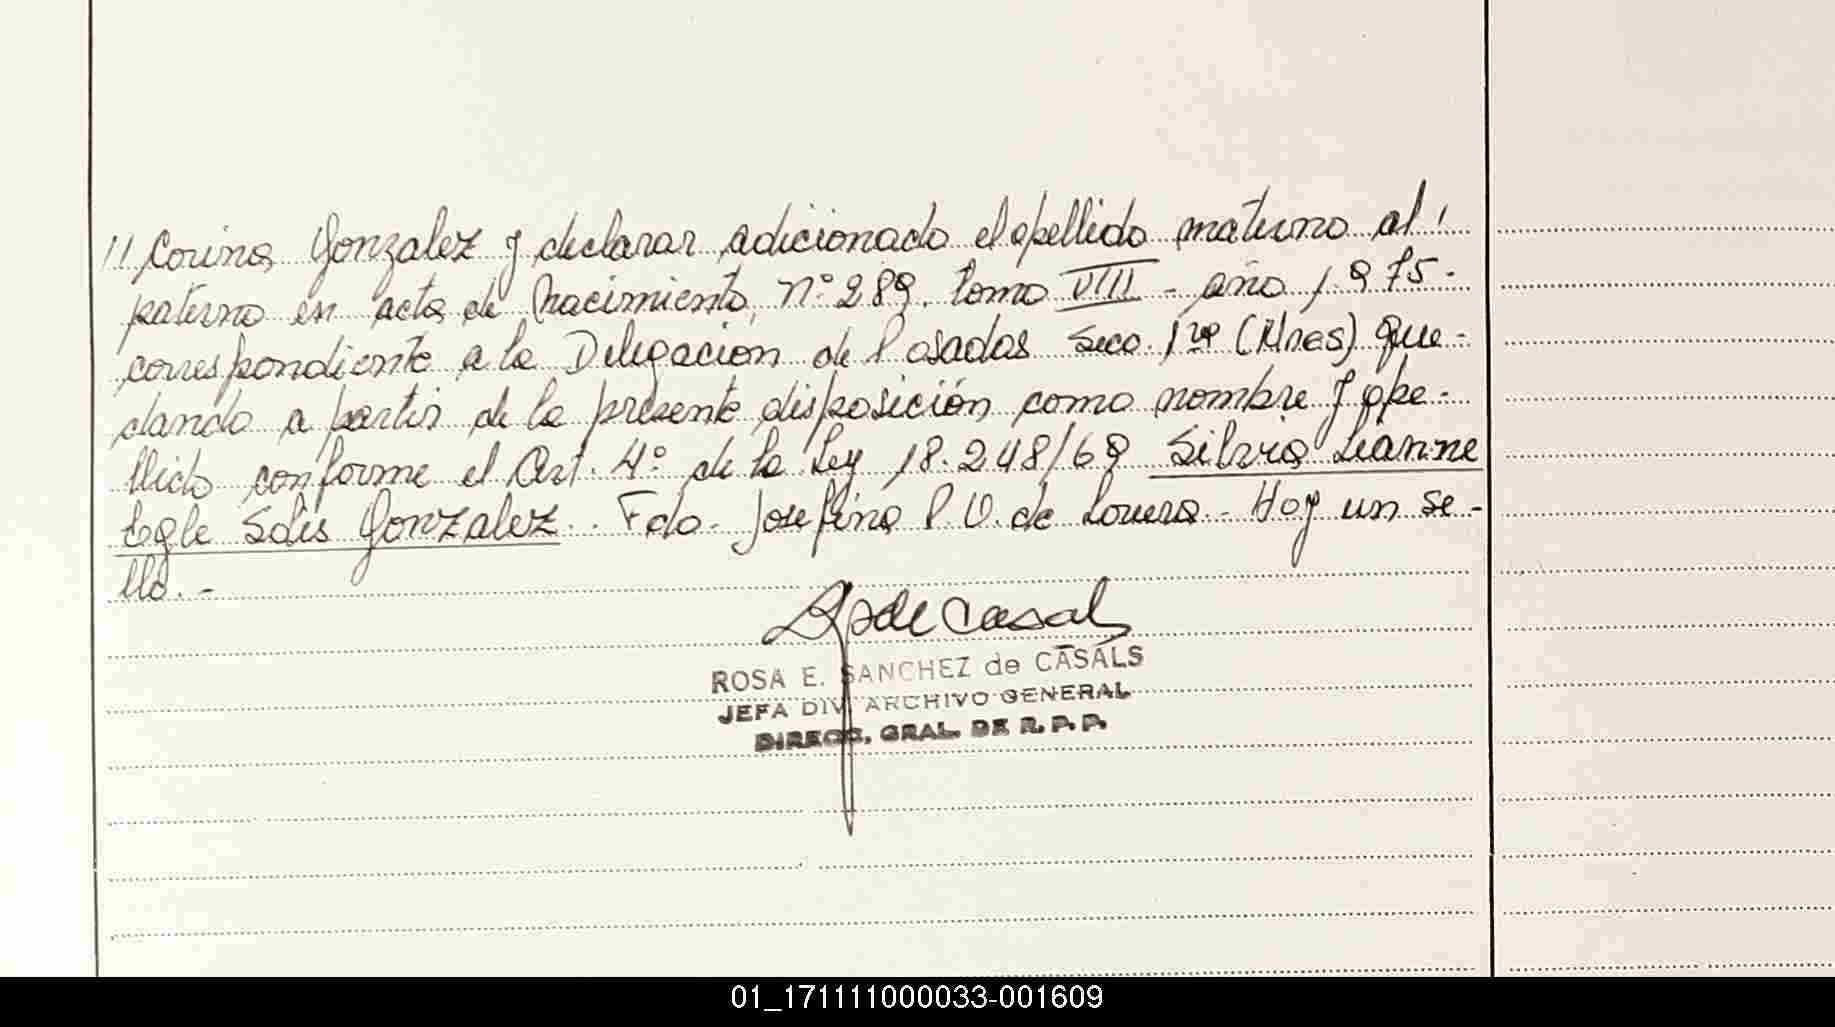 // Corina Gonzalez y declarar adicionado el apellido materno al /
paterno en acta de Nacimiento, nº 289. tomo VIII - año 1.975-
correspondiente a la Delegación de Posadas Secc. 1ra (Mnes) que-
dando a partir de la presente disposición como nombre y ape-
llido conforme el Art. 4º de la Ley 18.248/69 Silvia Lianne
Egle Solis Gonzalez. Fdo. Josefina P. V. de Lovera - Hay un se-
llo.-
R de Casals
ROSA E. SANCHEZ de CASALS
JEFA DIV. ARCHIVO GENERAL
DIRECC. GRAL. DE R. P. P.
01_171111000033-001609